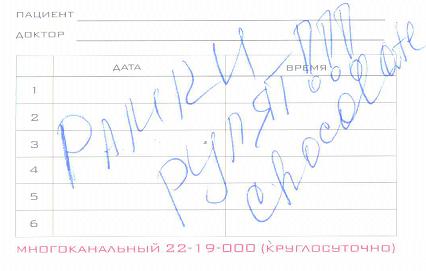 ПАЦИЕНТ
ДОКТОР
ДАТА ВРЕМЯ
1
2
3
4
5
6
рулят!!!
chocolate
МНОГОКАНАЛЬНЫЙ 22-19-000 (КРУГЛОСУТОЧНО)